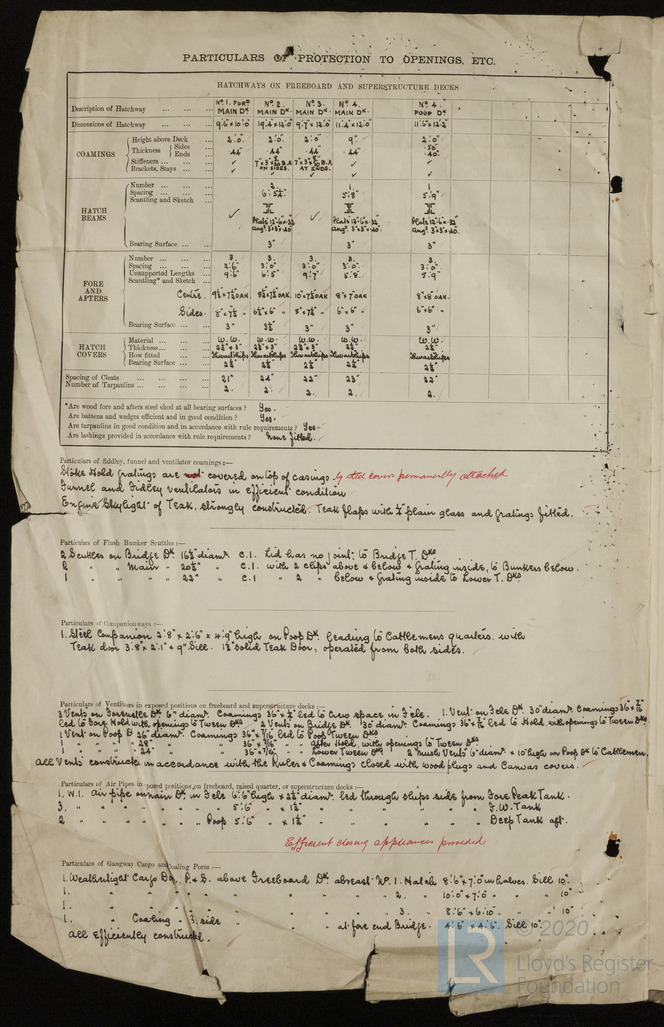 PARTICULARS OF PROTECTION TO OPENINGS, ETC.
HATCHWAYS ON FREEBOARD AND SUPERSTRUCTURE DECKS
Description of Hatchway Nº 1. FORD MAIN DK. Nº 2. MAIN DK. Nº 3. MAIN DK. Nº 4. MAIN DK. Nº 4. POOP DK.
Dimensions of Hatchway 9'.6"x10'.0" 19'.4"x12'.0" 9'.7"x12'.0" 11'.4"x12'.0" 11'.6"x12'.2"
COAMINGS
Height above Deck 2'.0" 2'.0" 2'.0" 9" 2'.0"
Thickness Sides .44" .44" .44" .44" .50"
Ends .40"
Stiffeners ON SIDES. AT ENDS.
Brackets, Stays
HATCH BEAMS
Number 2 1 1
Spacing 6'.5¼" 5'.8" 5'.9"
Scantling and Sketch
Bearing Surface 3" 3" 3"
FORE AND AFTERS
Number 3. 3. 3. 3. 3.
Spacing 2'.6" 3'.0" 3'.0" 3'.0" 3'.0"
Unsupported Lengths 9'.6" 6'.5" 9'.7" 5'.8" 5'.9"
Scantling* and Sketch
Centre. 9½"x7½"OAK 8½"x7½"OAK 10"x7½"OAK 8"x7"OAK 8"x8"OAK
Sides. 8"x7½" 6½"x6" 8"x7½" 6"x6" 6"x6"
Bearing Surface 3" 3½" 3" 3" 3"
HATCH COVERS
Material W.W. W.W. W.W. W.W. W.W.
Thickness 2½"x3" 2½"x3" 2½"x3" 2½" 2½"
How fitted Thwartships Thwartships Thwartships Thwartships Thwartships
Bearing Surface 2½" 2½" 2½" 2½" 2½"
Spacing of Cleats 21" 24" 22" 23" 22"
Number of Tarpaulins 2. 2. 2. 2. 2.
*Are wood fore and afters steel shod at all bearing surfaces? Yes.
Are battens and wedges efficient and in good condition? Yes.
Are tarpaulins in good condition and in accordance with rule requirements? Yes.
Are lashings provided in accordance with rule requirements? None fitted.
Particulars of fiddley, funnel and ventilator coamings:—
Stoke Hold gratings are not covered on top of casings by steel covers permanently attached
Funnel and Fidley Ventilators in efficient condition
Engine Skylight of Teak, strongly constructed. Teak flaps with ½" plain glass and gratings fitted.
Particulars of Flush Bunker Scuttles:—
2 Scuttles on Bridge Dk 16½" diamr. C.I. Lid has no joint; to Bridge T. Dks
2 " " Main " 20½" " C.I. with 2 clips above & below & Grating inside, to Bunkers below.
1 " " " " 22" " C.I " 2 " below & Grating inside to Lower T. Dks
Particulars of Companionways:—
1. Steel Companion 2'.8" x 2'.6" x 4'.9" high on Poop Dk leading to Cattlemens quarters. with
Teak door 3'.8" x 2'.1" & 9" Sill. 1½" Solid Teak Door, operated from both sides.
Particulars of Ventilators in exposed positions on freeboard and superstructure decks:—
3 Vents on Forecastle Dk 6" diamr. Coamings led to Crew space in Fcle. 1. Vent on Fcle Dk. 30" diamr. Coamings
led to Fore Hold with openings to Tween Dks 2 Vents on Bridge Dk. 30" diamr. Coamings led to Hold with openings to Tween Dks
1 Vent on Poop D 26" diamr. Coamings 36" x 7/16 led to Poop Tween Dks
1 " " " 28" " " 36" x 7/16" " After Hold with openings to Tween Dks
1 " " " 24" " " 36" x 7/16" " " Lower Tween Dks 2 Mush. Vents 6" diamr. x 10" high on Poop Dk to Cattlemen.
All Vents constructed in accordance with the Rules & Coamings closed with wood plugs and Canvas covers.
Particulars of Air Pipes in exposed positions on freeboard, raised quarter, or superstructure decks:—
1. W.I. Air pipe on main Dk. in Fcle 6'.6" high x 2½" diamr. led through ships side from Fore Peak Tank.
3. " " " " " " 5'.6" x 1½" " " " " " F.W. Tank
2 " " " " Poop 5'.6" x 1½" " " " " " Deep Tank aft.
Efficient closing appliances provided
Particulars of Gangway Cargo and Coaling Ports:—
1. Weathertight Cargo Door P. & S. above Freeboard Dk. abreast Nº. 1. Hatch 8'.6" x 7'.0" in halves. Sill 10".
1. " " " " " " " 2. " 10'.0" x 7'.0" " " 10"
1. " " " " " " " 3. " 8'.6" x 6'.10" " " 10"
1. " Coaling " 3 side " " at fore end Bridge. 4'.6" x 4'.6". Sill 10".
All Efficiently constructed.
LR © 2020
Lloyd's Register
Foundation